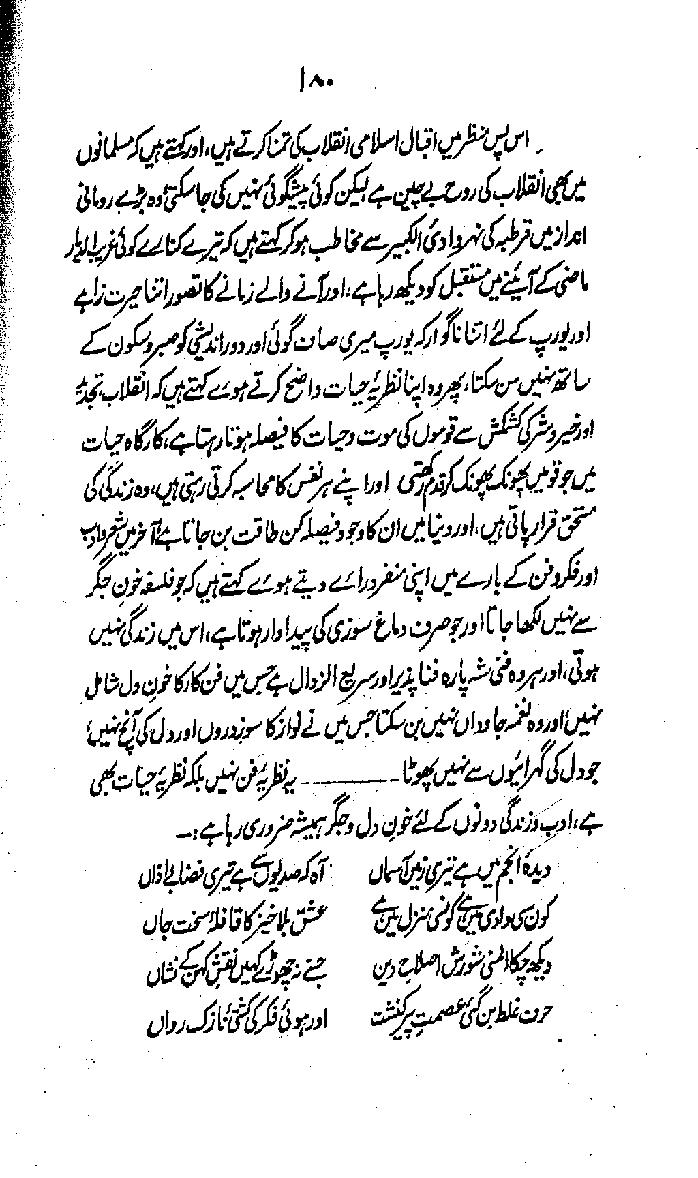 ۱۸۰
اس پس منظر میں اقبال اسلامی انقلاب کی تمنا کرتے ہیں، اور کہتے ہیں کہ مسلمانوں
میں بھی انقلاب کی روح بے چین ہے لیکن کوئی پیشگوئی نہیں کی جا سکتی، وہ بڑے رومانی
انداز میں قرطبہ کی نہر وادی الکبیر سے مخاطب ہو کر کہتے ہیں کہ تیرے کنارے کوئی غریب الدیار
ماضی کے آئینے میں مستقبل کو دیکھ رہا ہے، اور آنے والے زمانے کا تصور اتنا حیرت زا ہے
اور یورپ کے لئے اتنا ناگوار کہ یورپ میری صاف گوئی اور دور اندیشی کو صبر و سکون کے
ساتھ نہیں سن سکتا، پھر وہ اپنا نظریۂ حیات واضح کرتے ہوئے کہتے ہیں کہ انقلاب تجدید
اور خیر و شر کی کشمکش سے قوموں کی موت و حیات کا فیصلہ ہوتا رہتا ہے، کارگاہ حیات
میں جو قومیں پھونک پھونک کر قدم رکھتی اور اپنے ہر نفس کا محاسبہ کرتی رہتی ہیں، وہ زندگی کی
مستحق قرار پاتی ہیں، اور دنیا میں ان کا وجود فیصلہ کن طاقت بن جاتا ہے آخر میں شعر و ادب
اور فکر و فن کے بارے میں اپنی منفرد رائے دیتے ہوئے کہتے ہیں کہ جو فلسفہ خونِ جگر
سے نہیں لکھا جاتا اور جو صرف دماغ سوزی کی پیداوار ہوتا ہے، اس میں زندگی نہیں
ہوتی، اور ہر وہ فنی شہ پارہ فنا پذیر اور سریع الزوال ہے جس میں فن کار کا خونِ دل شامل
نہیں، اور وہ نغمہ جاوداں نہیں بن سکتا جس میں نے نواز کا سوز دروں اور دل کی آنچ نہیں،
جو دل کی گہرائیوں سے نہیں پھوٹا ـــــــــ یہ نظریۂ فن نہیں بلکہ نظریۂ حیات بھی
ہے، ادب و زندگی دونوں کے لئے خونِ دل و جگر ہمیشہ ضروری رہا ہے:۔
دیدۂ انجم میں ہے تیری زمیں آسماں آہ کہ صدیوں سے ہے تیری فضا بے اذاں
کون سی وادی میں ہے کونسی منزل میں ہے عشق بلا خیز کا قافلۂ سخت جاں
دیکھ چکا المنی شورش اصلاحِ دین جس نے نہ چھوڑے کہیں نقش کہن کے نشاں
حرف غلط بن گئی عصمتِ پیر کنشت اور ہوئی فکر کی کشتئ نازک رواں